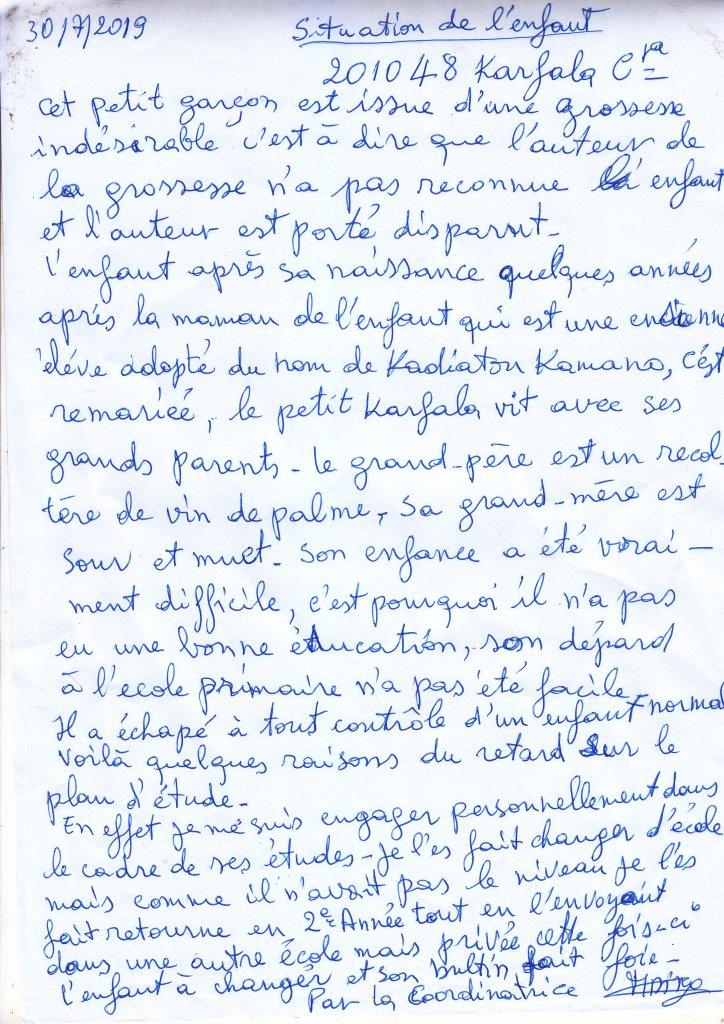 30/7/2019 Situation de l'enfant
201048 Karfala C ra
cet petit garçon est issue d'une grossesse
indésirable c'est à dire que l'auteur de
la grossesse n'a pas reconnue enfant
et l'auteur est porté disparut-
l'enfant après sa naissance quelques années
après la maman de l'enfant qui est une
élève adopté du nom de Kadiatou Kamano, c'est
remariéé, le petit Karfala vit avec ses
grands parents- le grand-père est un recol-
tère de vin de palme, sa grand-mère est
sour et muet- son enfance a été vrai-
ment difficile, c'est pourquoi il n'a pas
eu une bonne éducation, son dépard
à l'ecole primaire n'a pas été facile
Il a échapé à tout contrôle d'un enfant normal
voilà quelques raisons du retard sur le
plan d'étude-
En effet je me suis engager personnellement dans
le cadre de ses études- je l'es fait changer d'école
mais comme il n'avait pas le niveau je l'es
fait retourne en 2e Année tout en l'envoyant
dans une autre école mais privée cette fois-ci
l'enfant à changér et son bultin fait foie-
Par la Coordinatrice